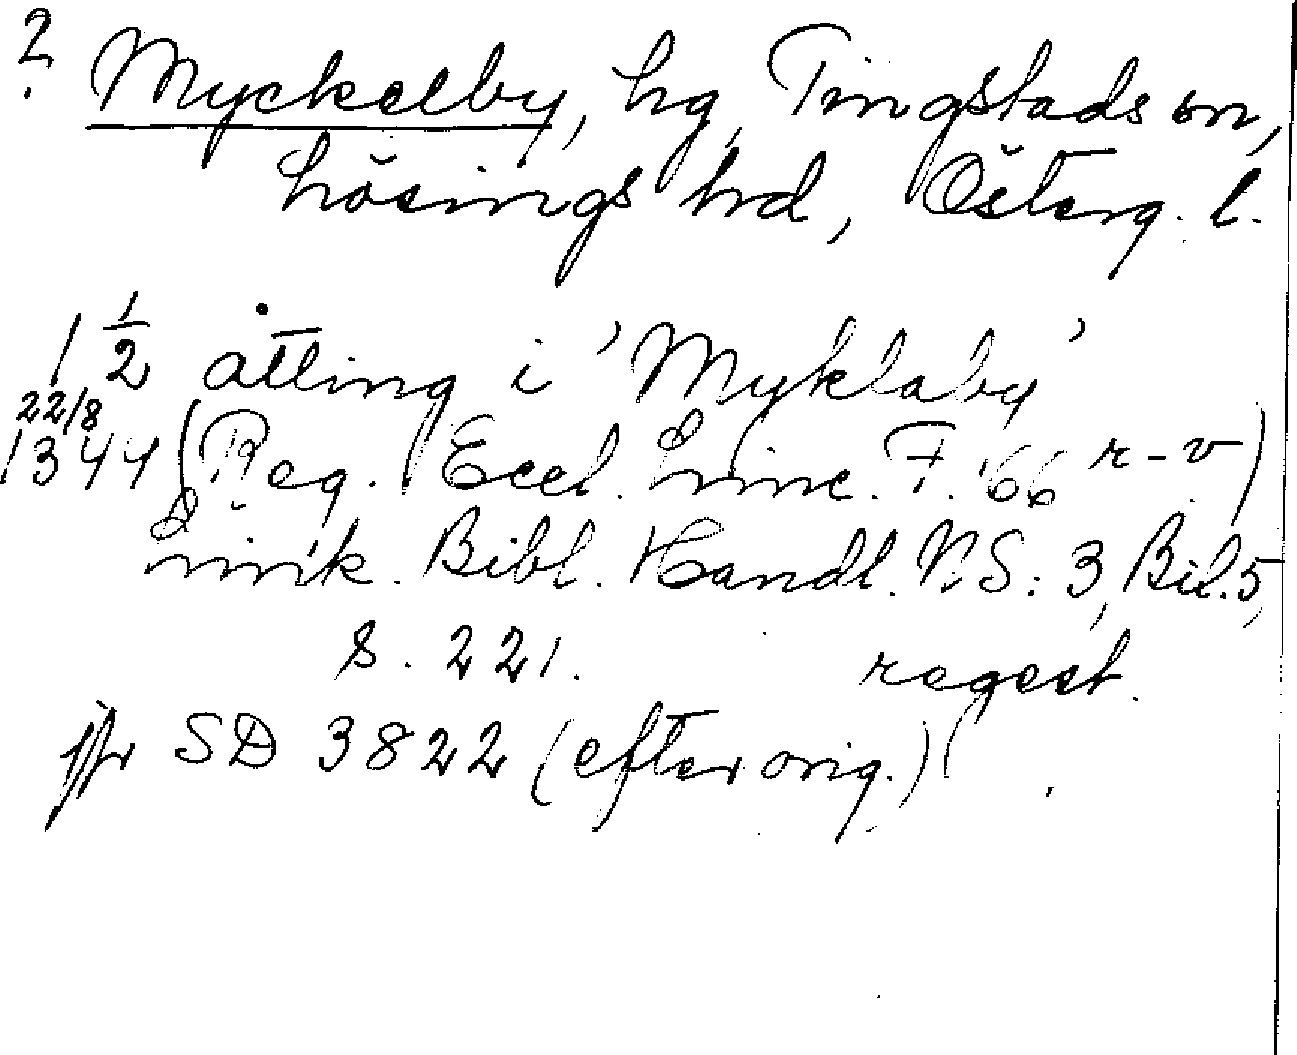 ? Myckelby, hg, Tingstads sn,
Lösings hd, Österg. l.
1 1/2 åtting i 'Myklaby'
22/8
1344 (Reg. Eccl. Linc. F. 66 r-v)
Link. Bibl. Handl. NS: 3, Bil. 5,
s. 221. regest.
jfr SD 3822 (efter orig.)